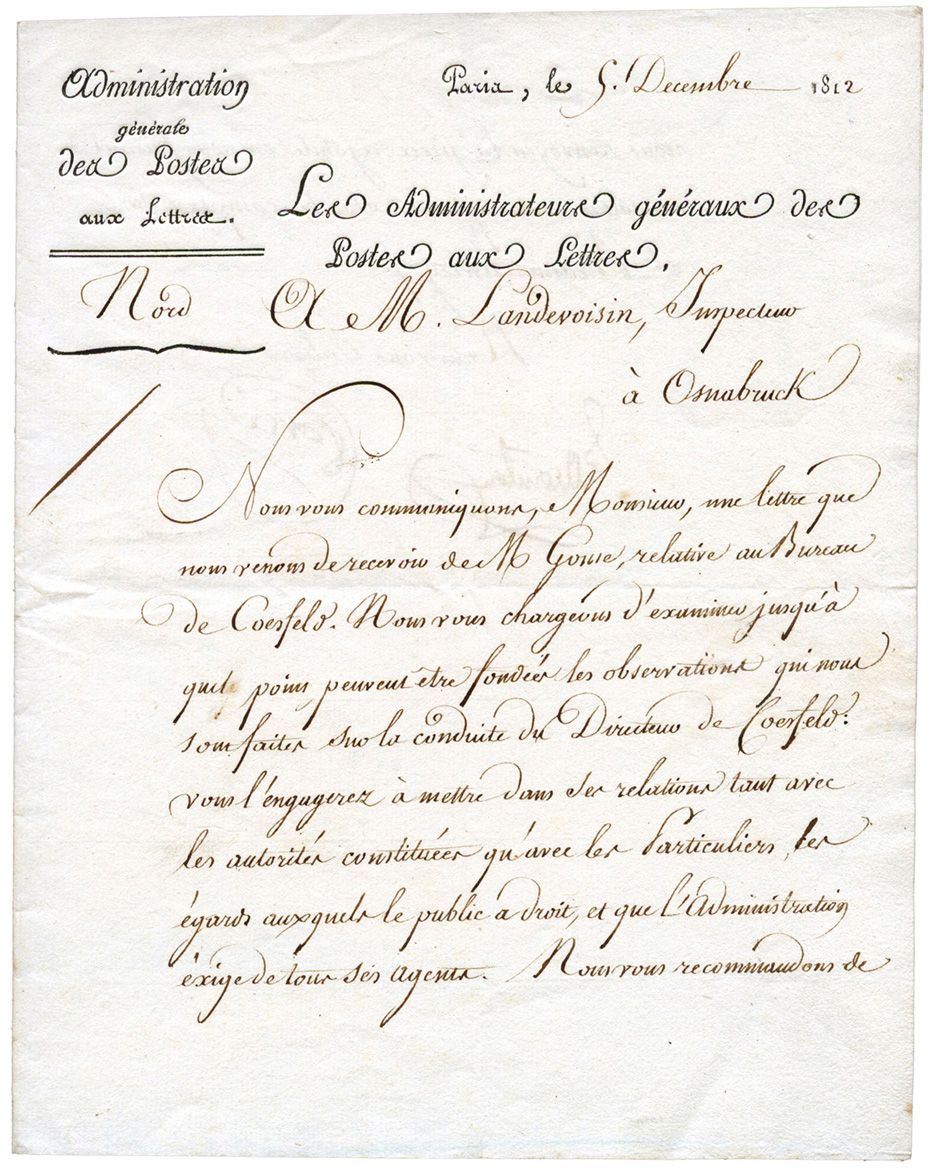 Administration
générale
des Postes
aux Lettres.
Paris, le 5. Decembre 1812
Les Administrateurs généraux des
Postes aux Lettres.
Nord
A M. Landevoisin, Inspecteur
à Osnabruck
Nous vous communiquons, Monsieur, une lettre que
nous venons de recevoir de M Gouse, relative au Bureau
de Coesfeld. Nous vous chargeons d'examiner jusqu'à
quel point peuvent être fondées les observations qui nous
sont faites sur la conduite du Directeur de Coesfeld.
vous l'engagerez à mettre dans ses relations tant avec
les autorités constituées qu'avec les Particuliers, les
égards auxquels le public a droit, et que l'Administration
éxige de tous ses agents. Nous vous recommandons de